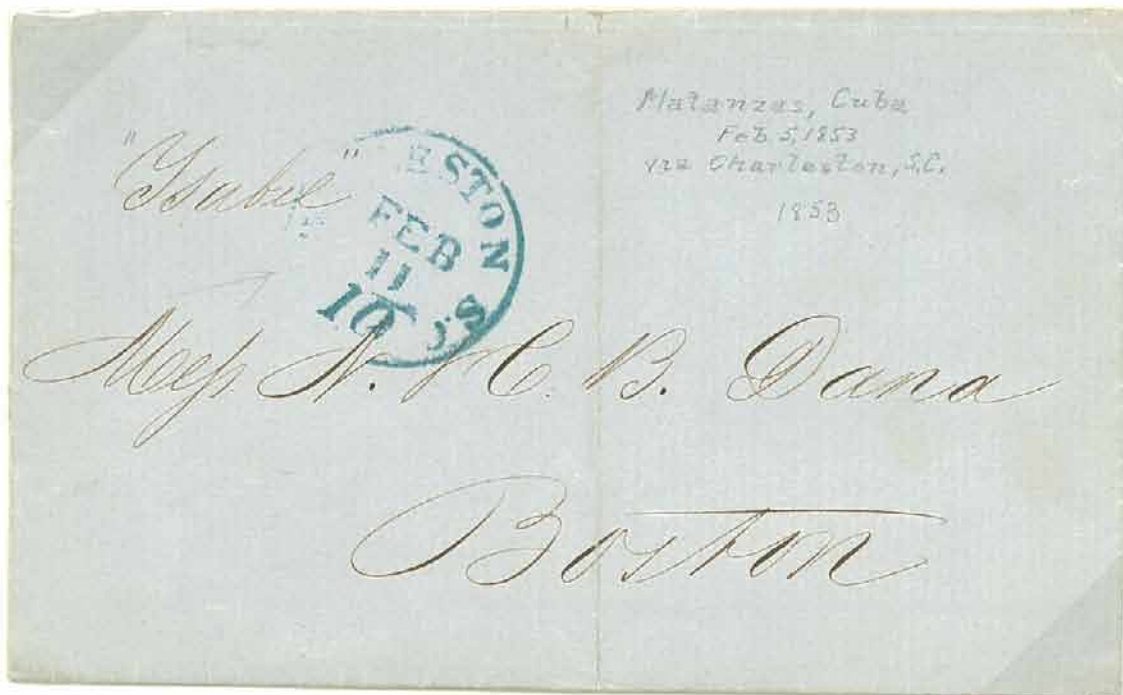 "Ysabel"
ESTON S.
FEB
11
10
Matanzas, Cuba
Feb 5, 1853
via Charleston, S.C.
1853
Mess. N. H. C. B. Dana
Boston